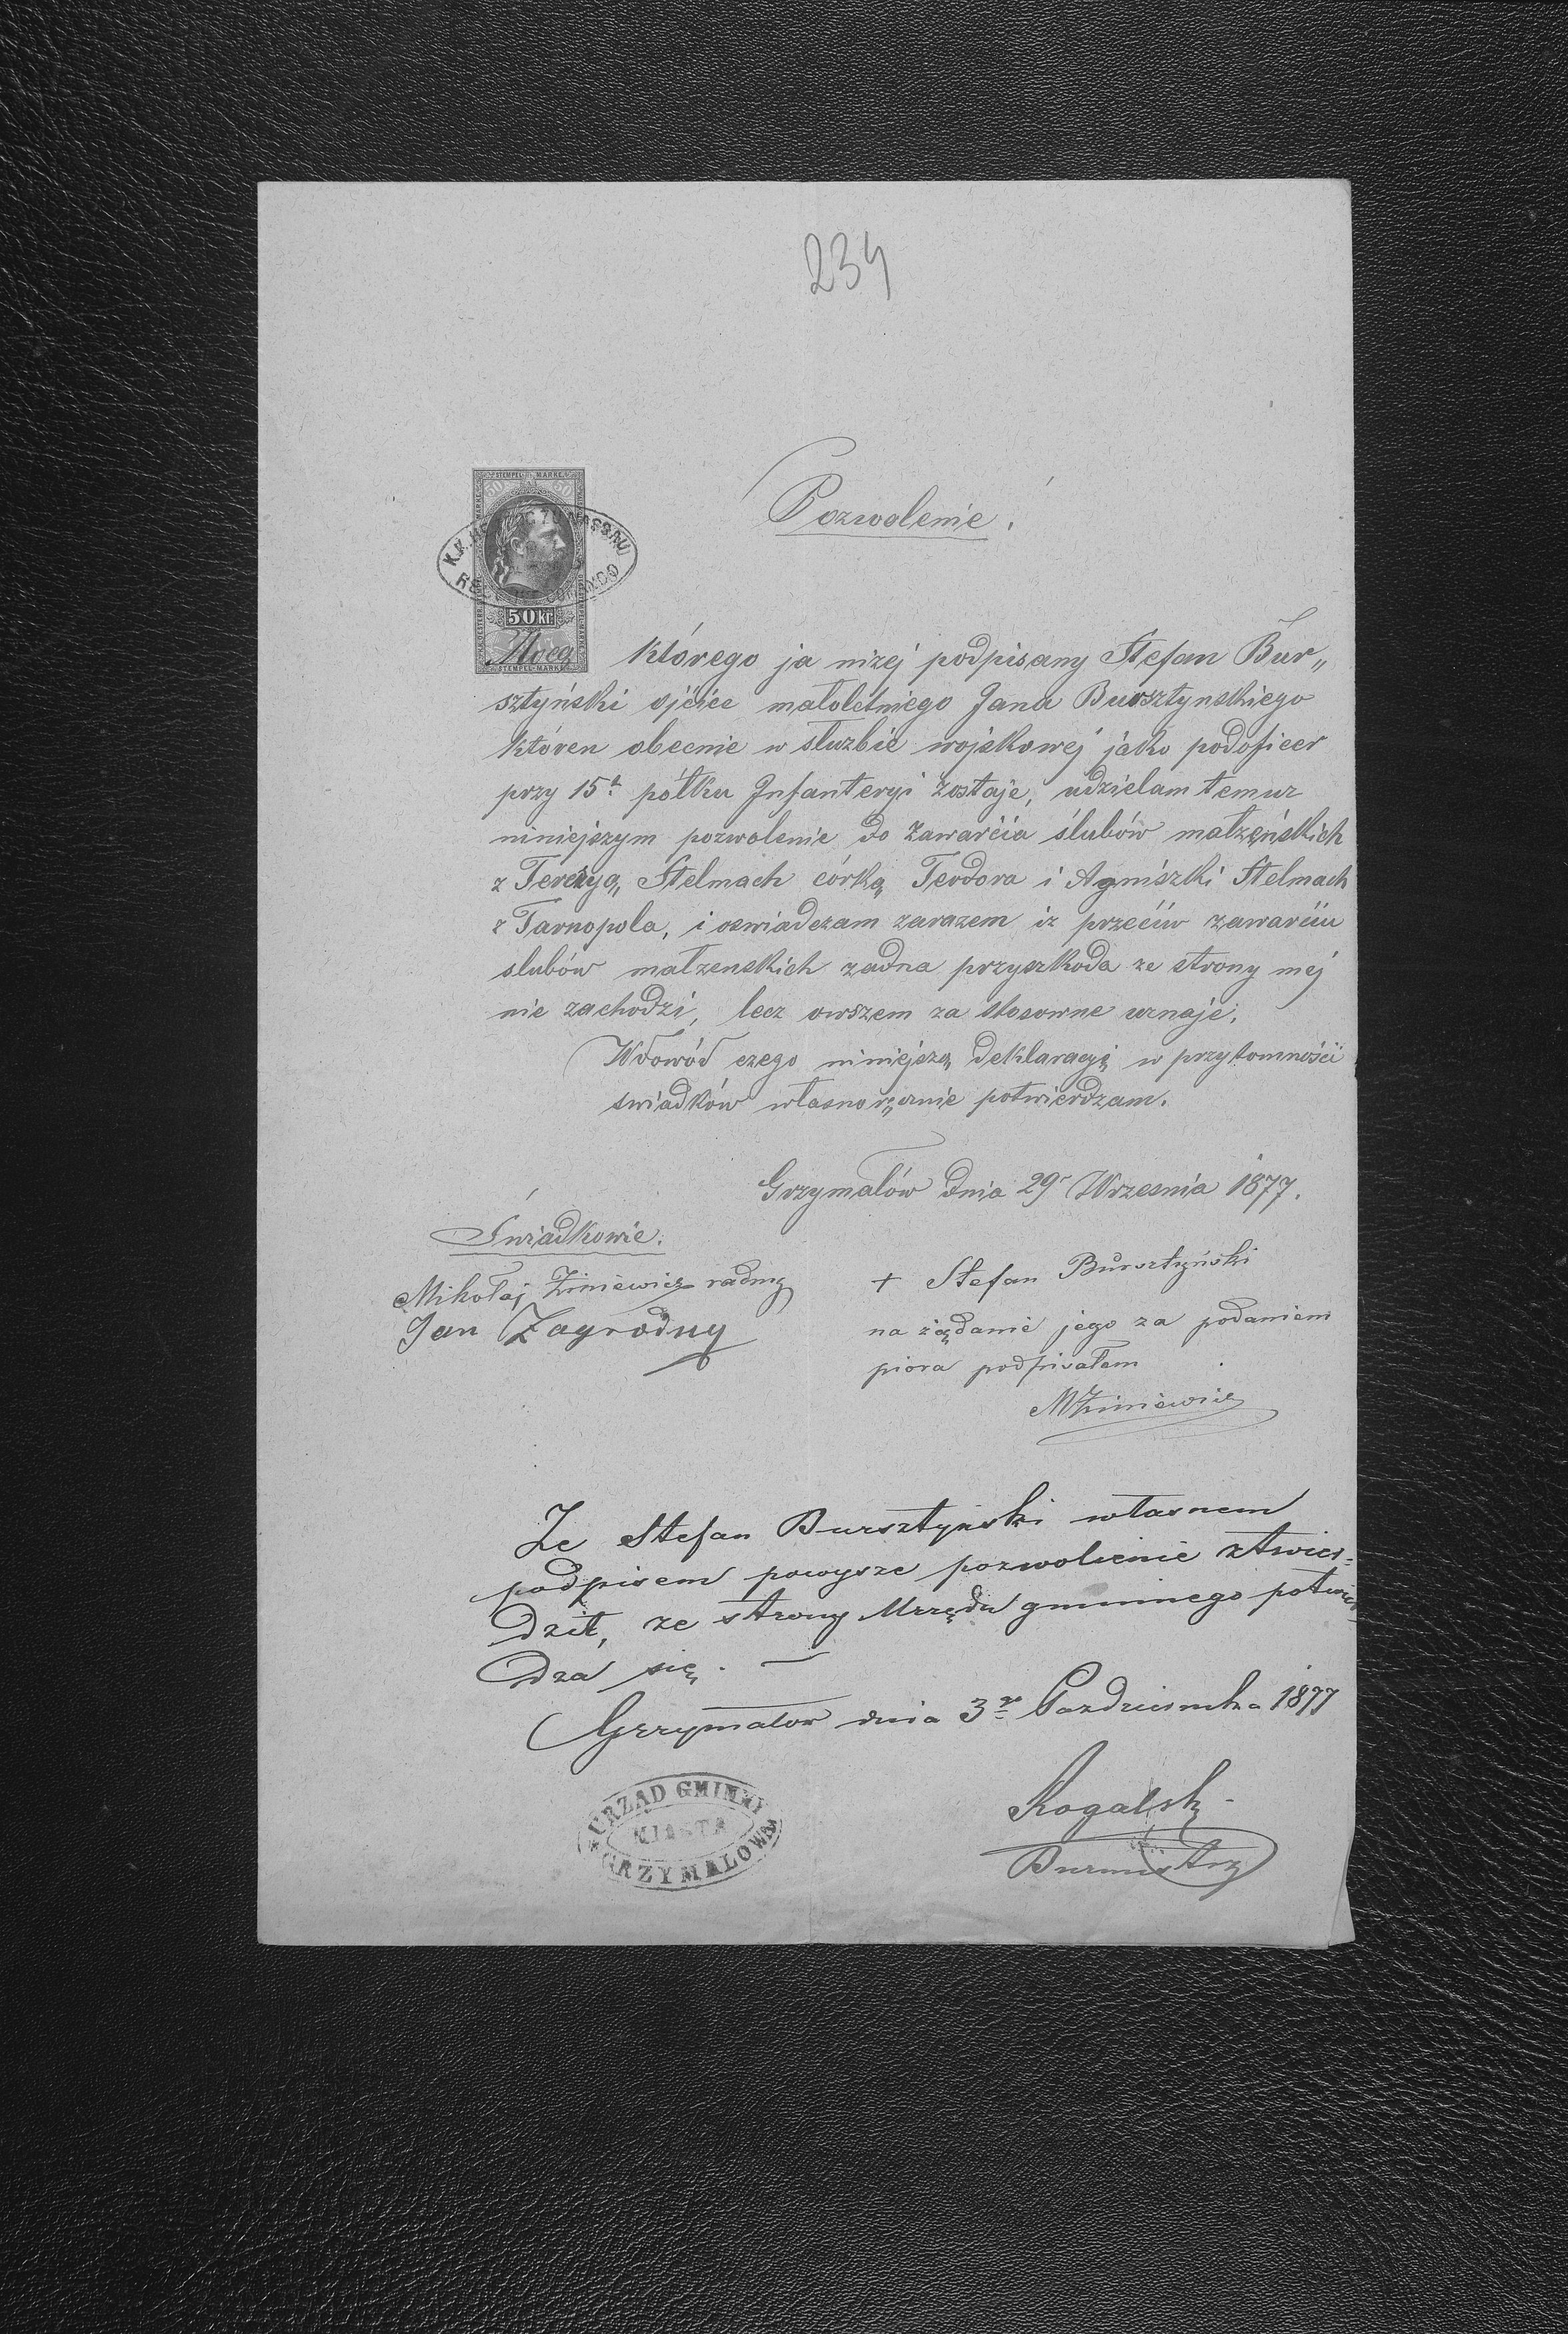 234
Pozwolenie.
STEMPEL MARKE
50 kr.
Mocą którego ja nizej podpisany Stefan Bur„
sztyński ojciec małoletniego Jana Bursztynskiego
któren obecnie w słuzbie wojskowej jako podoficer
przy 15t. półku Infanteryi zostaje, udzielam temuz
niniejszym pozwolenie do zawarcia ślubów małzęńskich
z Terezyą, Stelmach córką Teodora i Agniszki Stelmach
z Tarnopola, i oswiadczam zarazem iz przećiw zawarćiu
slubów małzenskich zadna przyszkoda ze strony mej
nie zachodzi, lecz owszem za stosowne uznaje.
Wdowód czego niniejszą deklaracyę w przytomnośći
swiadków własnoręcznie potwierdzam.
Grzymałów dnia 29 Wrzesnia 1877.
Świadkowie.
Mikołaj Ziniewicz radny
Jan Zagrodny
+ Stefan Bursztyński
na żądanie jego za podaniem
piora podpisałem
MZiniewicz
Ze Stefan Bursztyński własnem
podpisem powysze pozwolienie ztwier=
dził, ze strony Urzędu gminnego potwier
dza się. —
Grzymałow dnia 3go Pazdziernika 1877
URZAD GMINNY
MIASTA
GRZYMALOWA
Rogalski
Burmistrz